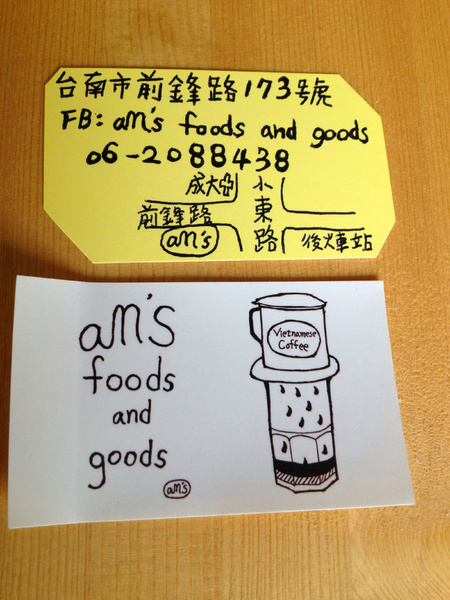 台南市前鋒路173號
FB: am's foods and goods
06-2088438
成大亞
小東路
前鋒路
am's
後火車站
am's
foods
and
goods
am's
Vietnamese
Coffee